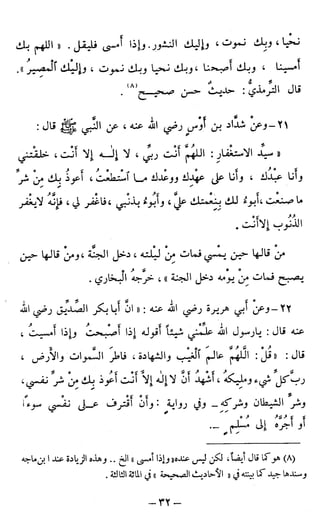 نحيا، وبك نموت، وإليك النشور. وإذا أمسى فليقل. « اللهم بك
أمسينا ، وبك أصبحنا ، وبك نحيا وبك نموت ، وإليك المصير ».
قال الترمذي: حديث حسن صحيح (٨).
٢١- وعن شداد بن أوس رضي الله عنه ، عن النبي ﷺ قال :
« سيّد الاستغفار: اللهمّ أنت ربي ، لا إلـه إلا أنت، خلقتني
وأنا عبدك ، وأنا على عهدك ووعدك مـا استطعت، أعوذ بك مِنْ شرّ
ماصنعت، أبوء لك بنعمتك عليّ، وأبوء بذنبي ،فاغفر لي ، فإنه لايغفر
الذنوب إلا أنت .
من قالها حين يمسي فمات مِنْ ليلته ، دخل الجنة ،ومنْ قالها حين
يصبح فمات مِنْ يومه دخل الجنة » ، خرّجه البخاري .
٢٢- وعن أبي هريرة رضي الله عنه : « انّ أبا بكر الصدّيق رضي الله
عنه قال : يارسول الله علّمني شيئاً أقوله إذا أصبحتُ وإذا أمسيتُ ،
قال: « قُلْ: اللّهُمَّ عالم الغيب والشهادة، فاطر السموات والأرض ،
ربّ كلّ شيء ومليكهُ ، أشهدُ أنْ لا إله إلاّ أنت أعوذ بك مِنْ شرّ نفسي،
وشرّ الشيطان وشركه - وفي رواية : وأنْ أقترف عـلى نفسي سوءاً
أو أجُرّهُ إلى مُسْلِمٍ -.
(٨) هو كما قال أيضاً، لكن ليس عنده «وإذا أمسى » الخ .. وهذه الزيادة عند ابن ماجه
وسندها جيد كما بينته في « الأحاديث الصحيحة » في المائة الثالثة .
- ٣٢ -